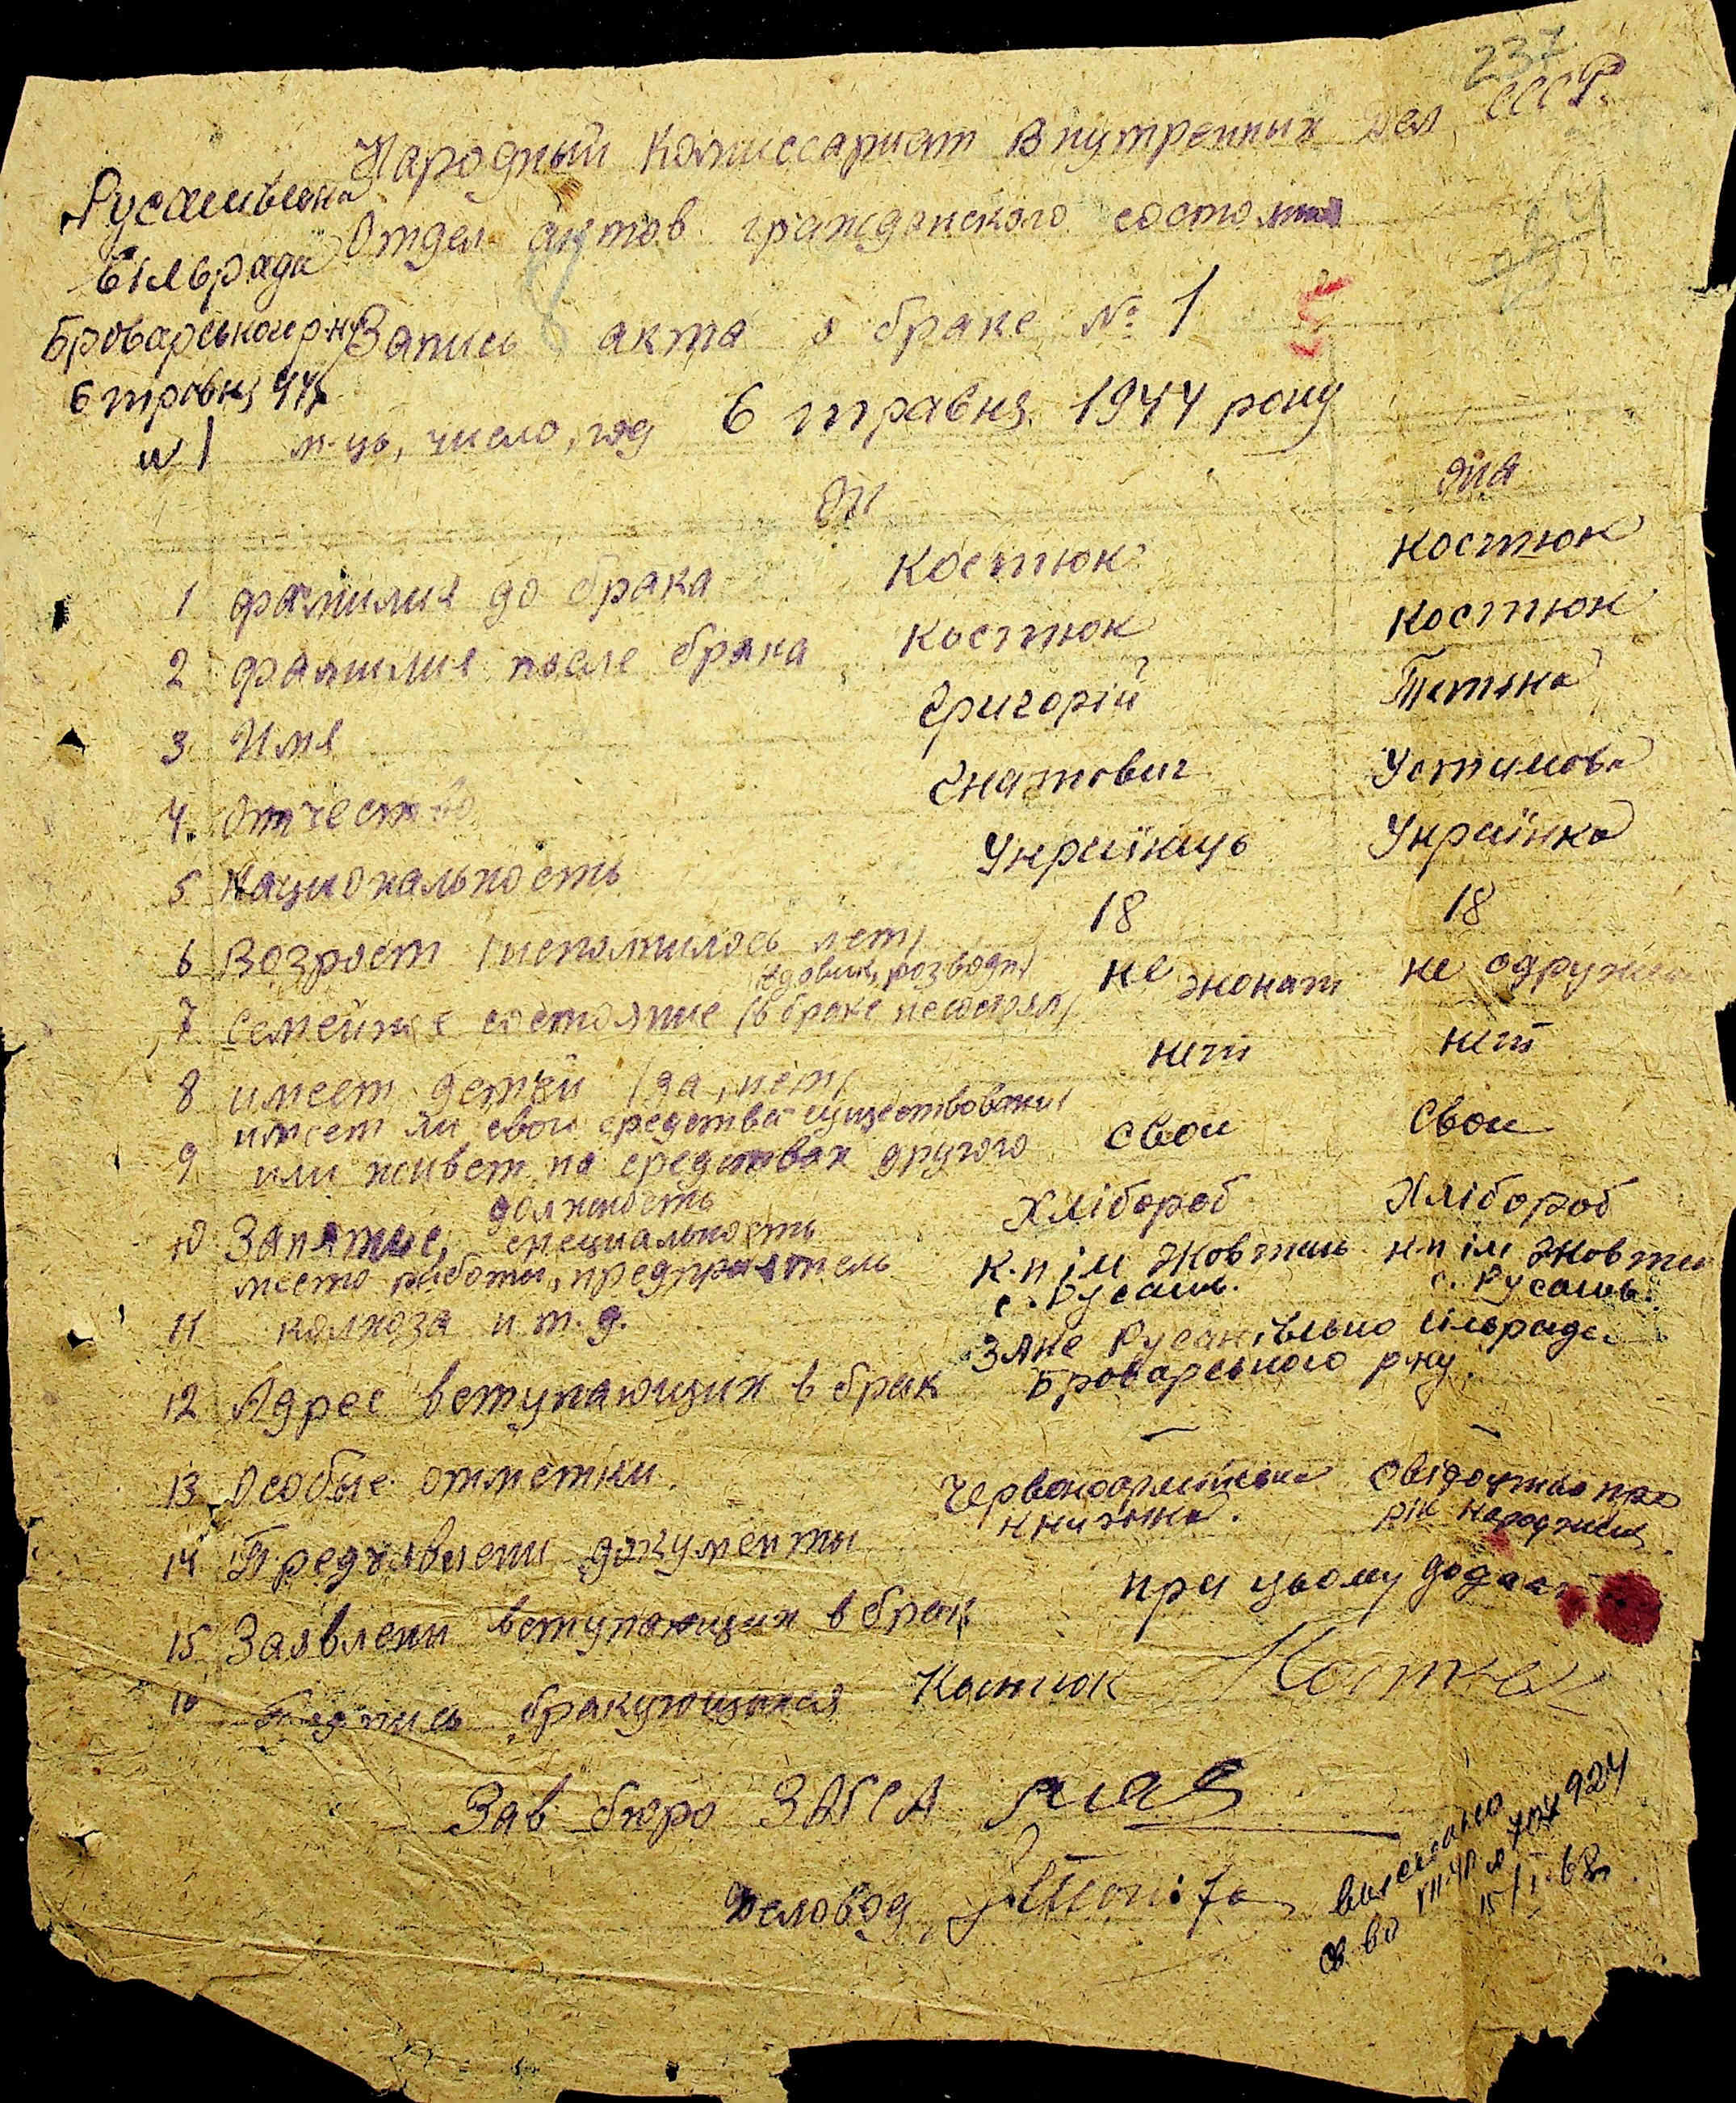 237
Народный Комиссариат Внутренных Дел СССР
Отдел актов гражданского состояния
Русанівська
сільрада
Броварського р-ну
6 травня 44 р
№ 1
Запись акта о браке № 1
м-ць, число, год 6 травня 1944 року
Он Она
1 фамилия до брака Костюк Костюк
2 фамилия после брака Костюк Костюк
3 Имя Григорій Тетяна
4. Отчество Гнатович Устимова
5 Национальность Українець Українка
6 Возраст (исполнилось лет) 18 18
7 Семейное состояние (в браке несостоял, вдовик, розводн) не жонат не одружена
8 имеет детей (да, нет) нет нет
9 имеет ли свои средства существования свои Свои
или живет на средствах другого
10 Занятие, должность специальность Хлібороб Хлібороб
11 место работы, предприятель к-п ім Жовтень к-п ім Жовтен
колхоза и т. д. с. Русанів. с. Русанів.
12 Адрес вступающих в брак Русанівсько сільрада
Броварського р-ну.
13 Особые отметки — —
14 Предъявлени документы Червоноармійська книжка. свідоцтво про рік народжен.
15 Заявлени вступающих в брак при цьому додаєт
16 Подпись бракующихся Костюк Костюк
Зав бюро ЗАГСА
Деловод
выслано
св во 15/I-68